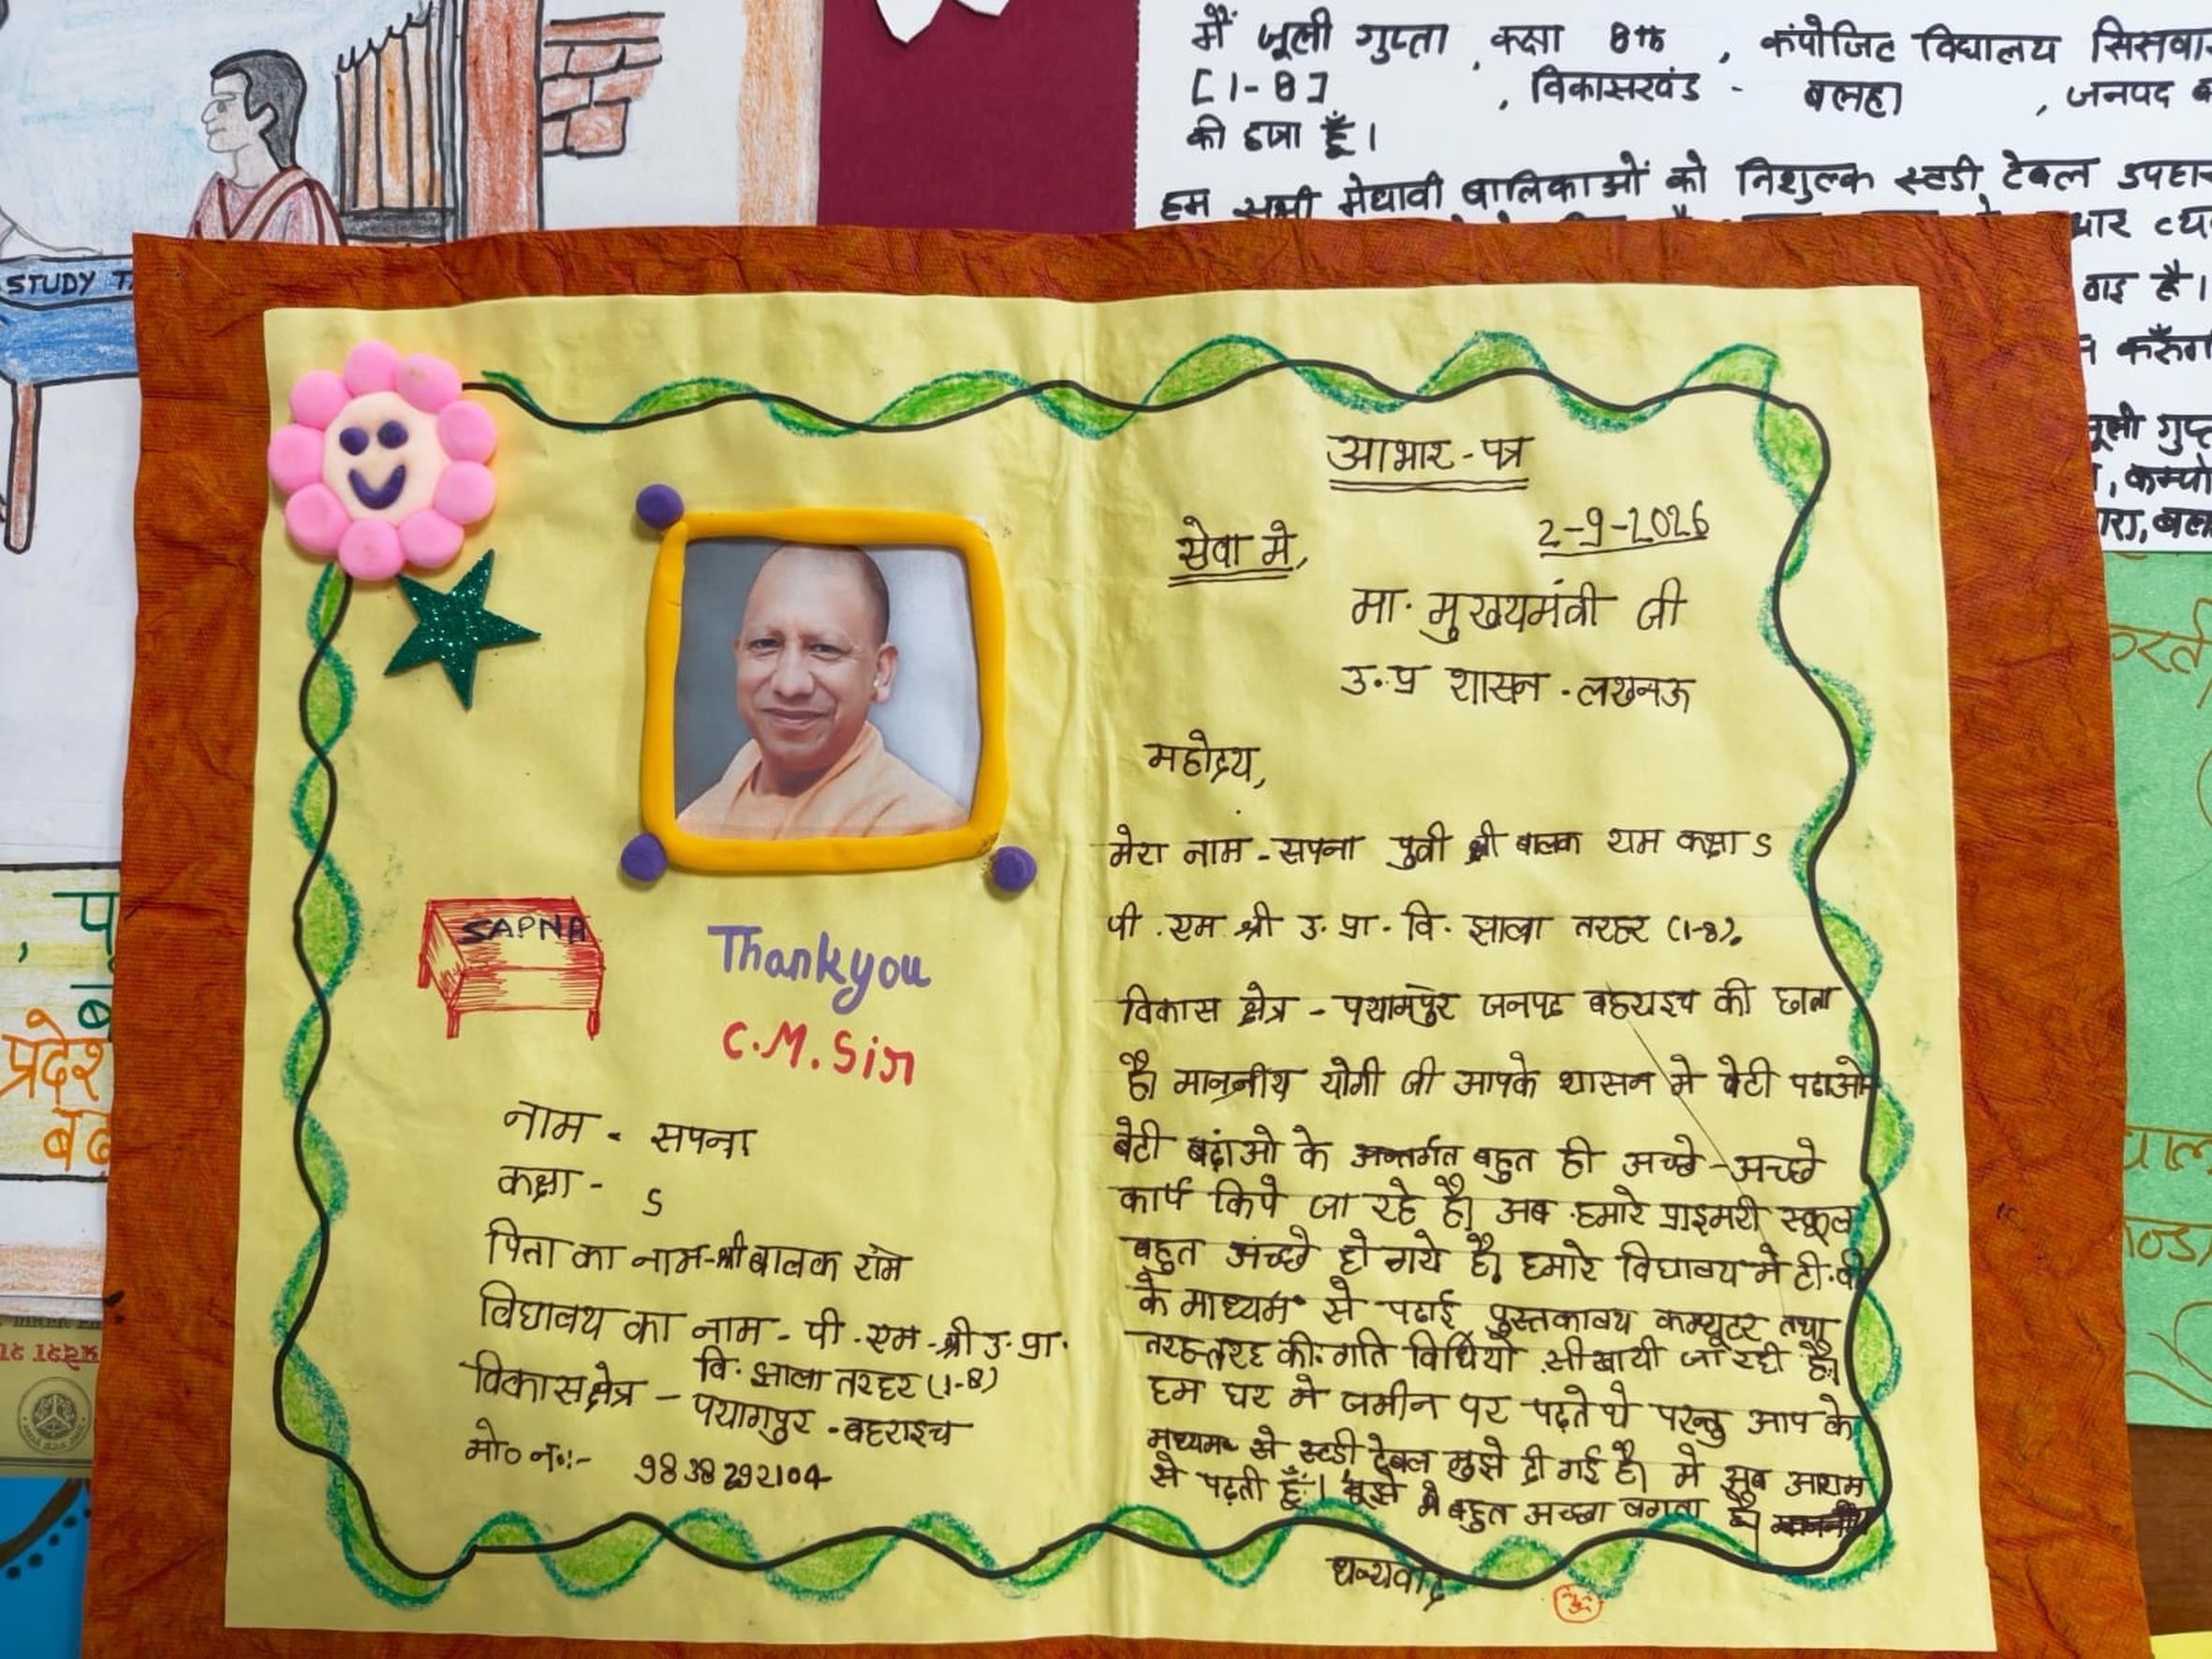 मैं जूली गुप्ता, कक्षा 8th, कंपोजिट विद्यालय
[1-8], विकासखंड - बलहा, जनपद
की छात्रा हूँ।
हम सभी मेधावी बालिकाओं को निशुल्क स्टडी टेबल
STUDY
आभार-पत्र
2-9-2026
सेवा मे,
मा. मुख्यमंत्री जी
उ.प्र शासन - लखनऊ
महोदय,
मेरा नाम - सपना पुत्री श्री बालक राम कक्षा 5
पी. एम श्री उ. प्रा. वि. झाला तरहर (1-8),
विकास क्षेत्र - पयागपुर जनपद बहराइच की छात्रा
है। माननीय योगी जी आपके शासन मे बेटी पढाओ
बेटी बढ़ाओ के अन्तर्गत बहुत ही अच्छे-अच्छे
कार्य किये जा रहे है। अब हमारे प्राइमरी स्कूल
बहुत अच्छे हो गये है। हमारे विद्यालय मे टी.वी
के माध्यम से पढाई पुस्तकालय कम्प्यूटर तथा
तरह-तरह की गति विधियो सीखायी जा रही है।
हम घर मे जमीन पर पढ़ते थे परन्तु आप के
मध्यम से स्टडी टेबल मुझे दी गई है। मे आराम
से पढ़ती हूँ। बहुत अच्छा लगता है।
धन्यवाद
SAPNA
Thankyou
C.M.Sir
नाम - सपना
कक्षा - 5
पिता का नाम-श्री बालक राम
विद्यालय का नाम - पी. एम - श्री उ. प्रा.
वि. झाला तरहर (1-8)
विकासक्षेत्र - पयागपुर - बहराइच
मो० न०:- 9838292104